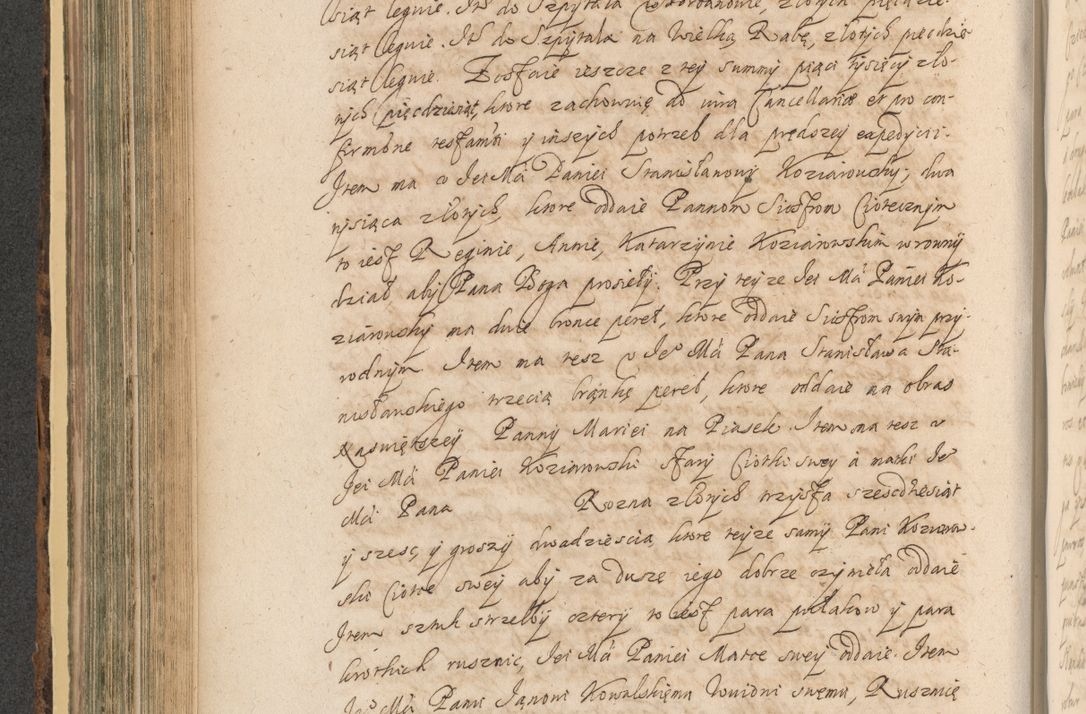 siąt legnie. Ité do Szpytala złotych pięćdzie-
siąt legnie. Ité do Szpytala na Wielką Rabę, złotych piecdzie
siąt legnie. Zostaie ieszcze z tey summy piąci tysięcy zło-
tych pięcdziesiąt, ktore zachownię do Cancellariae et pro con-
firmōne testamti y inszych potrzeb dla prędszey expedycii.
Item ma v Jei Mći Paniei Stanisłanowy Koziarowsky, dwa
tysiąca złotych, ktore oddaie Pannom Siostrom Ciotecznym
to iest Reginie, Annie, Katarzynie Koziarowskim w rowny
dział aby Pana Boga prosieły. Przy teyze Jei Mći Paniei Ko-
ziarowsky ma dwie bronce pereł, ktore oddaie Siostrom swym przy-
rodnym. Item ma tesz v Jeo Mći Pana Stanisława Sta-
nisławskiego trzecią brąnkę pereł, ktore oddaie na obras
Naświętszey Panny Mariei na Piasek. Item ma tesz v
Jei Mći Paniei Koziarowski stary Ciotki swey a matki Jeo
Mći Pana Rozna złotych trzysta szescdziesiąt
y szesc, y groszy dwadziescia, ktore teyze samy Pani Koziarow-
ski Ciotce swey aby za dusze iego dobrze czynieła oddaie
Item sztuk strzelby cztery to iest para pułakow y para
krotkich rusznic, Jei Mći Paniei Matce swey oddaie. Item
Jeo Mći Panu Janowi Kowalskiemu Wuiowi swemu, Rusznicę